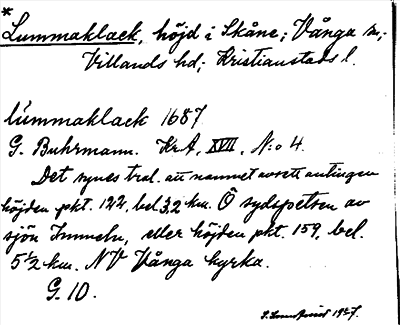 *
Lummaklack, höjd i Skåne; Vånga sn;
Villands hd; Kristianstads l.
lummaklack 1687
G. Buhrmann. KrA, XVII, N:o 4.
Det synes trol. att namnet avsett antingen
höjden pkt. 122, bel 3,2 km. Ö sydspetsen av
sjön Immeln, eller höjden pkt. 159, bel.
5 1/2 km. NV Vånga kyrka.
G. 10.
1927.